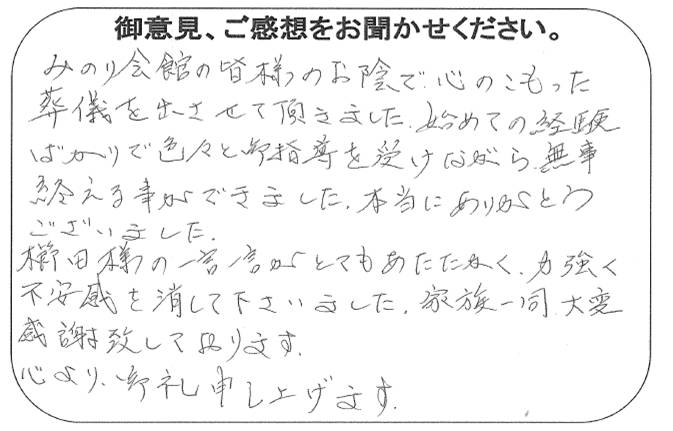 御意見、ご感想をお聞かせください。
みのり会館の皆様のお陰で心のこもった
葬儀を出させて頂きました。始めての経験
ばかりで色々と御指導を受けながら、無事
終える事ができました。本当にありがとう
ございました。
櫛田様の一言一言がとてもあたたかく、力強く
不安感を消して下さいました。家族一同、大変
感謝致しております。
心より、御礼申し上げます。